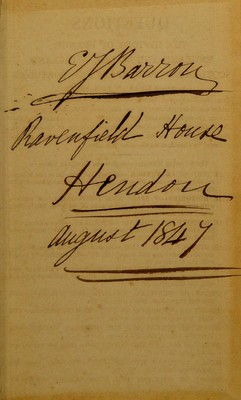 EJ Barron
Ravenfield House
Hendon
August 1847